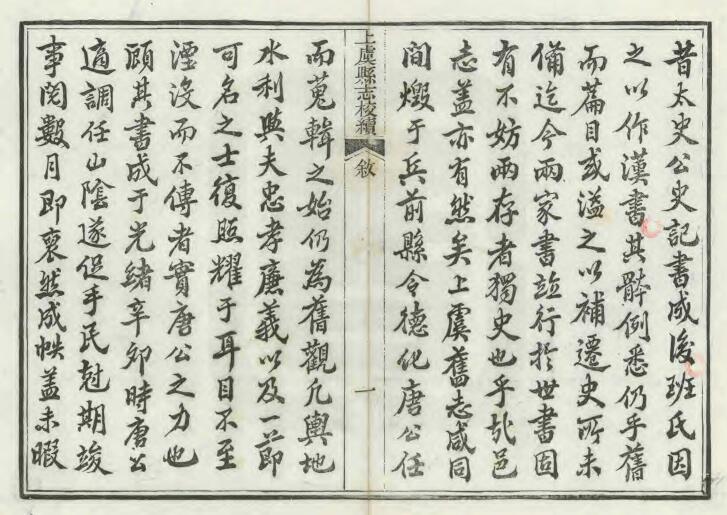 昔太史公史記書成後班氏因
之以作漢書其體例悉仍乎舊
而篇目或溢之以補遷史所未
備迄今兩家書竝行於世書固
有不妨兩存者獨史也乎哉邑
志蓋亦有然矣上虞舊志咸同
間燬于兵前縣令德化唐公任
上虞縣志校續
敘
一
而蒐輯之始仍為舊觀凡輿地
水利與夫忠孝廉義以及一節
可名之士復照耀于耳目不至
湮沒而不傳者實唐公之力也
顧其書成于光緒辛卯時唐公
適調任山陰遂促手民尅期竣
事閱數月即裒然成帙蓋未暇